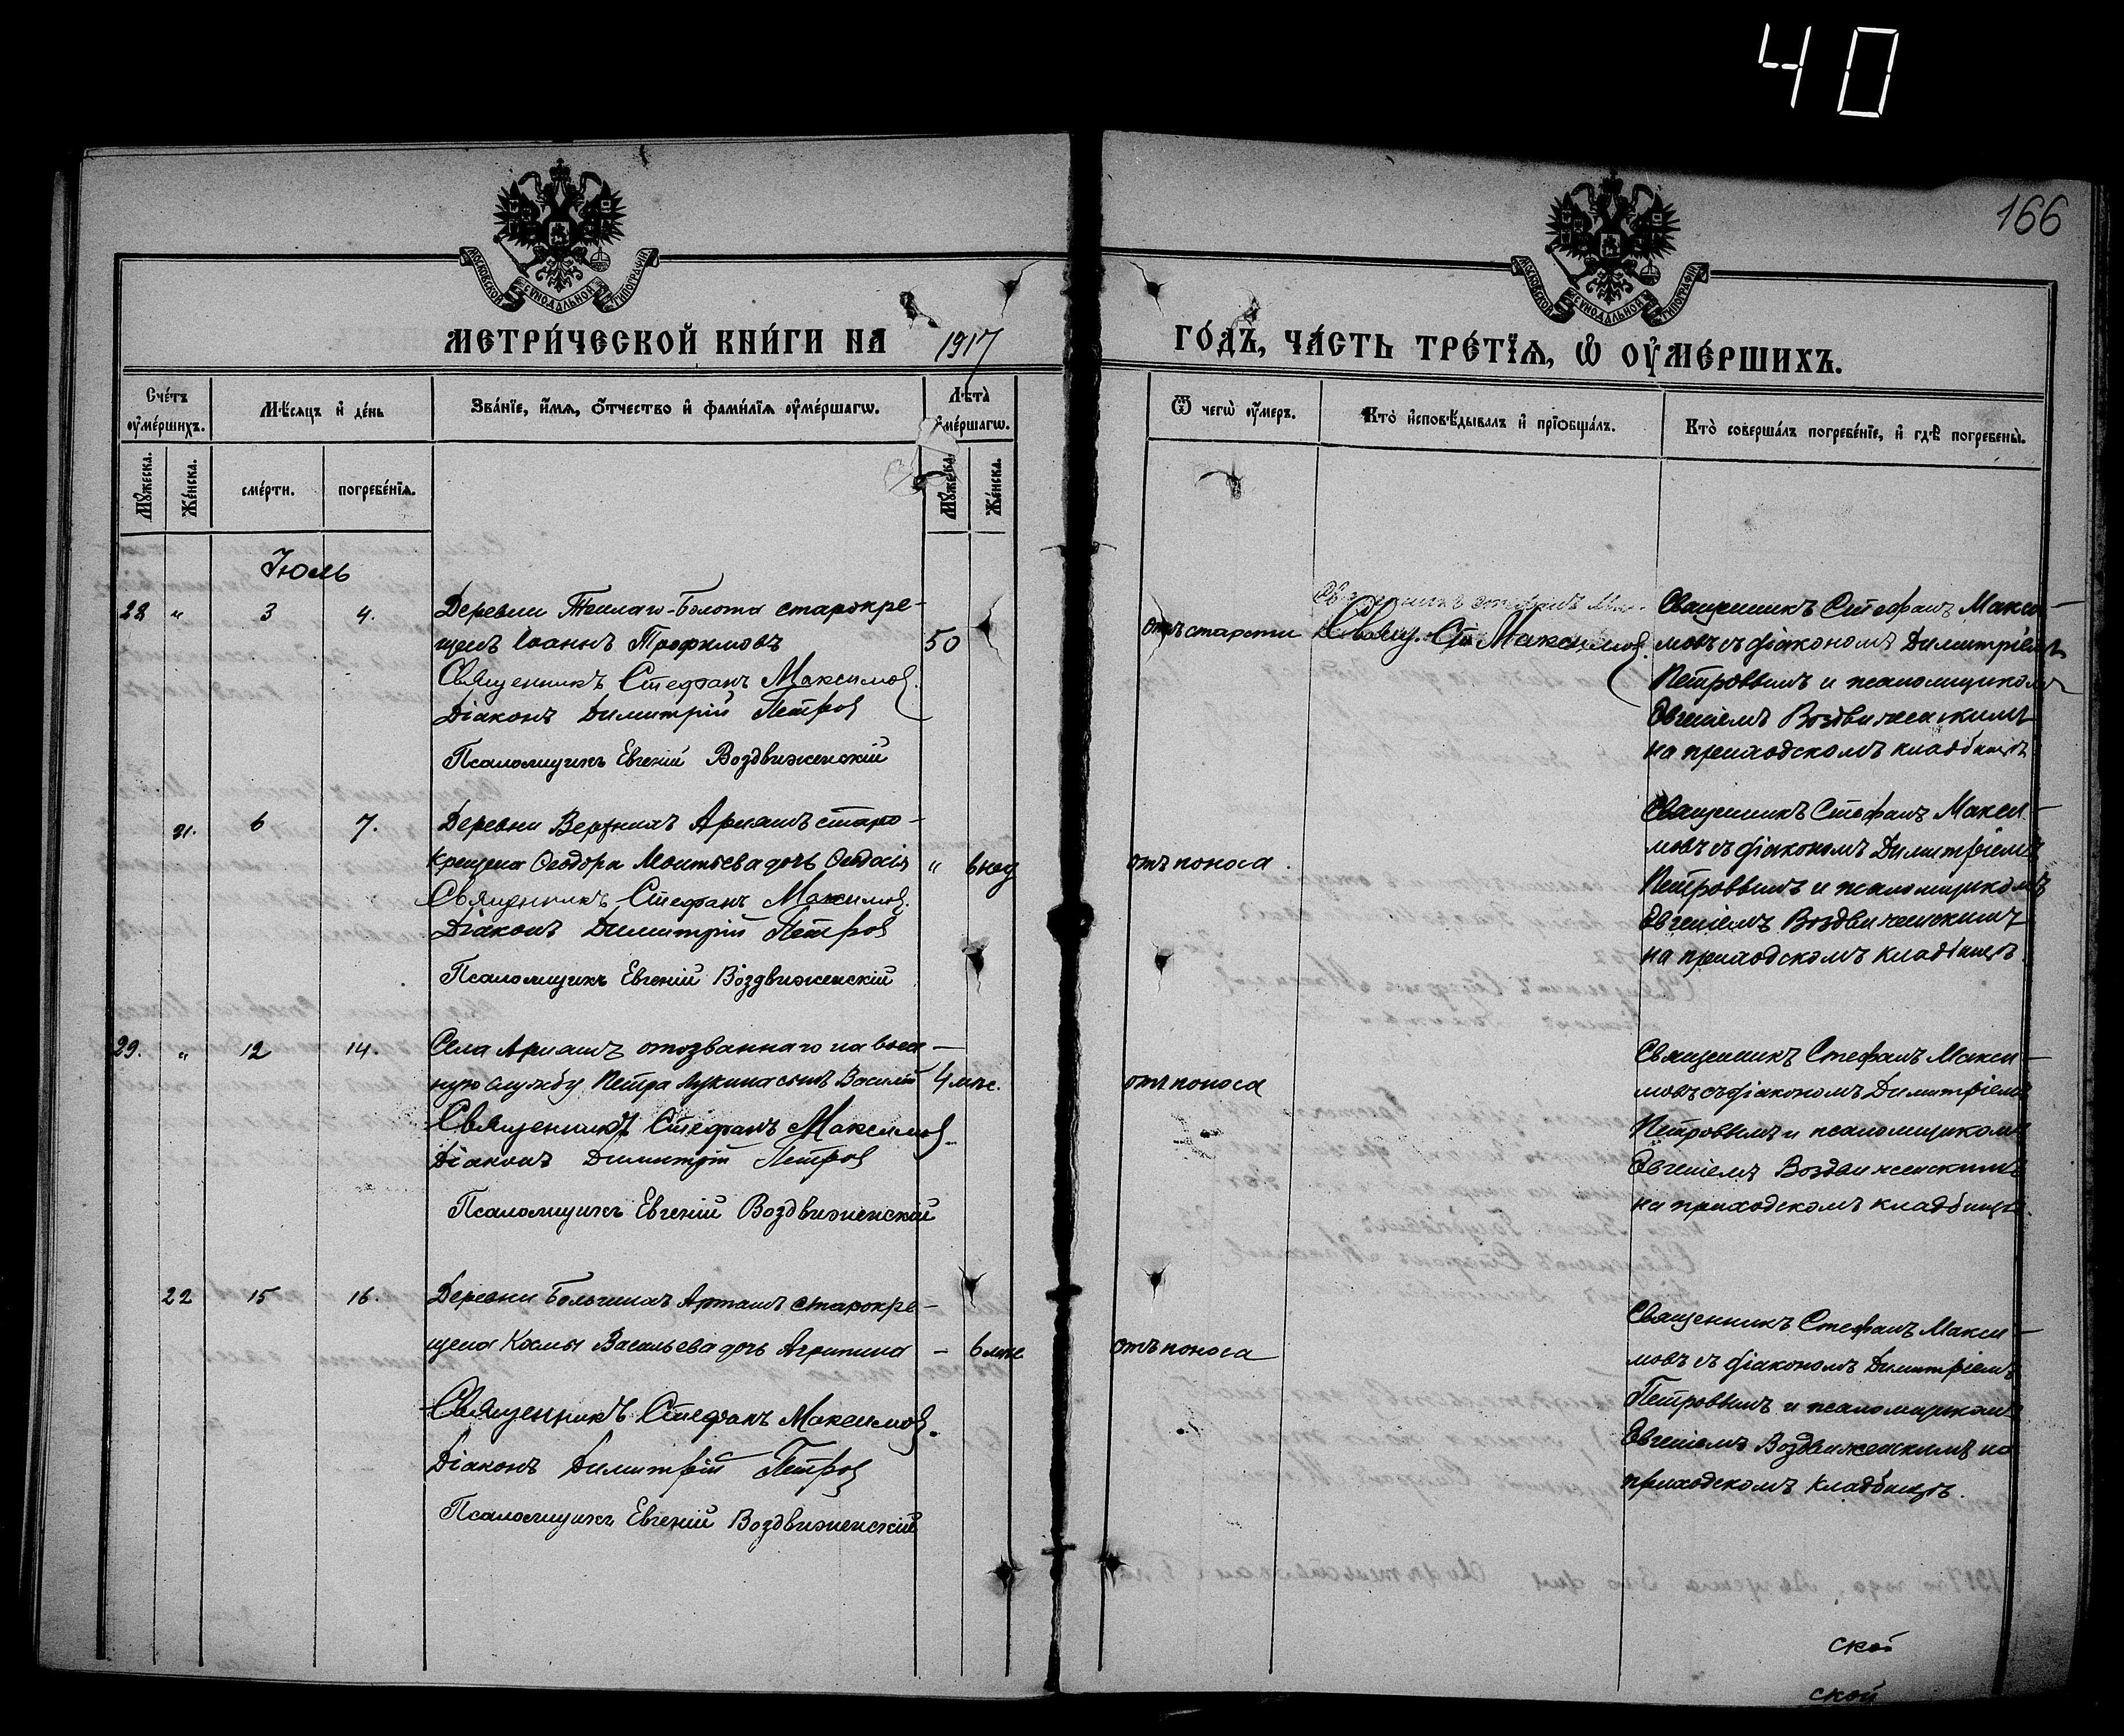 40
166
МОСКОВСКОЙ СѴНОДАЛЬНОЙ ТИПОГРАФІИ
МОСКОВСКОЙ СѴНОДАЛЬНОЙ ТИПОГРАФІИ
МЕТРИ́ЧЕСКОЙ КНИ́ГИ НА 1917 ГО́ДЪ, ЧА́СТЬ ТРЕ́ТЇѦ, Ѡ҆ ОУ҆МЕ́РШИХЪ.
Сче́тъ оу҆ме́ршихъ.
Мѣ́сяцъ и҆ де́нь
Зва́нїе, и҆́мѧ, ѻ҆́тчество и҆ фами́лїѧ оу҆ме́ршагѡ.
Лѣ́та оу҆ме́ршагѡ.
Ѿ чегѡ̀ оу҆́меръ.
Кто̀ и҆сповѣ́дывалъ и҆ прїобща́лъ.
Кто̀ соверша́лъ погребе́нїе, и҆ гдѣ̀ погребены̀.
Мꙋ́жеска.
Же́нска.
сме́рти.
погребе́нїѧ.
Мꙋ́жеска.
Же́нска.
Іюль
28 „ 3 4. Деревни Болота старокре-
щенъ Іоаннъ Трофимовъ 50
Священникъ Стефанъ Максимов.
Діаконъ Димитрій Петров
Псаломщикъ Евгеній Воздвиженскій
отъ старости
Свящ. Ст. Максимов.
Священникъ Стефанъ Макси-
мовъ съ діакономъ Димитріемъ
Петровымъ и псаломщикомъ
Евгеніемъ Воздвиженскимъ
на приходскомъ кладбищѣ
21. 6 7. Деревни Верхнихъ Аряшъ старо-
крещена Ѳеодора Моисѣева дочь „ 6 нед
Священникъ Стефанъ Максимов.
Діаконъ Димитрій Петров
Псаломщикъ Евгеній Воздвиженскій
отъ поноса.
Священникъ Стефанъ Макси-
мовъ съ діакономъ Димитріемъ
Петровымъ и псаломщикомъ
Евгеніемъ Воздвиженскимъ
на приходскомъ кладбищѣ.
29. „ 12 14. Села Аряшъ отозваннаго на воен-
ную службу Петра Лукина сынъ Василій 4 мѣс.
Священникъ Стефанъ Максимов.
Діаконъ Димитрій Петров
Псаломщикъ Евгеній Воздвиженскій
отъ поноса
Священникъ Стефанъ Макси-
мовъ съ діакономъ Димитріемъ
Петровымъ и псаломщикомъ
Евгеніемъ Воздвиженскимъ
на приходскомъ кладбищѣ.
22 15 16. Деревни Большихъ Арташъ старокре-
щена Космы Васильева дочь Агрипина - 6 мѣс
Священникъ Стефанъ Максимов.
Діаконъ Димитрій Петров
Псаломщикъ Евгеній Воздвиженскій
отъ поноса
Священникъ Стефанъ Макси-
мовъ съ діакономъ Димитріемъ
Петровымъ и псаломщикомъ
Евгеніемъ Воздвиженскимъ на
приходскомъ кладбищѣ.
ской
ской